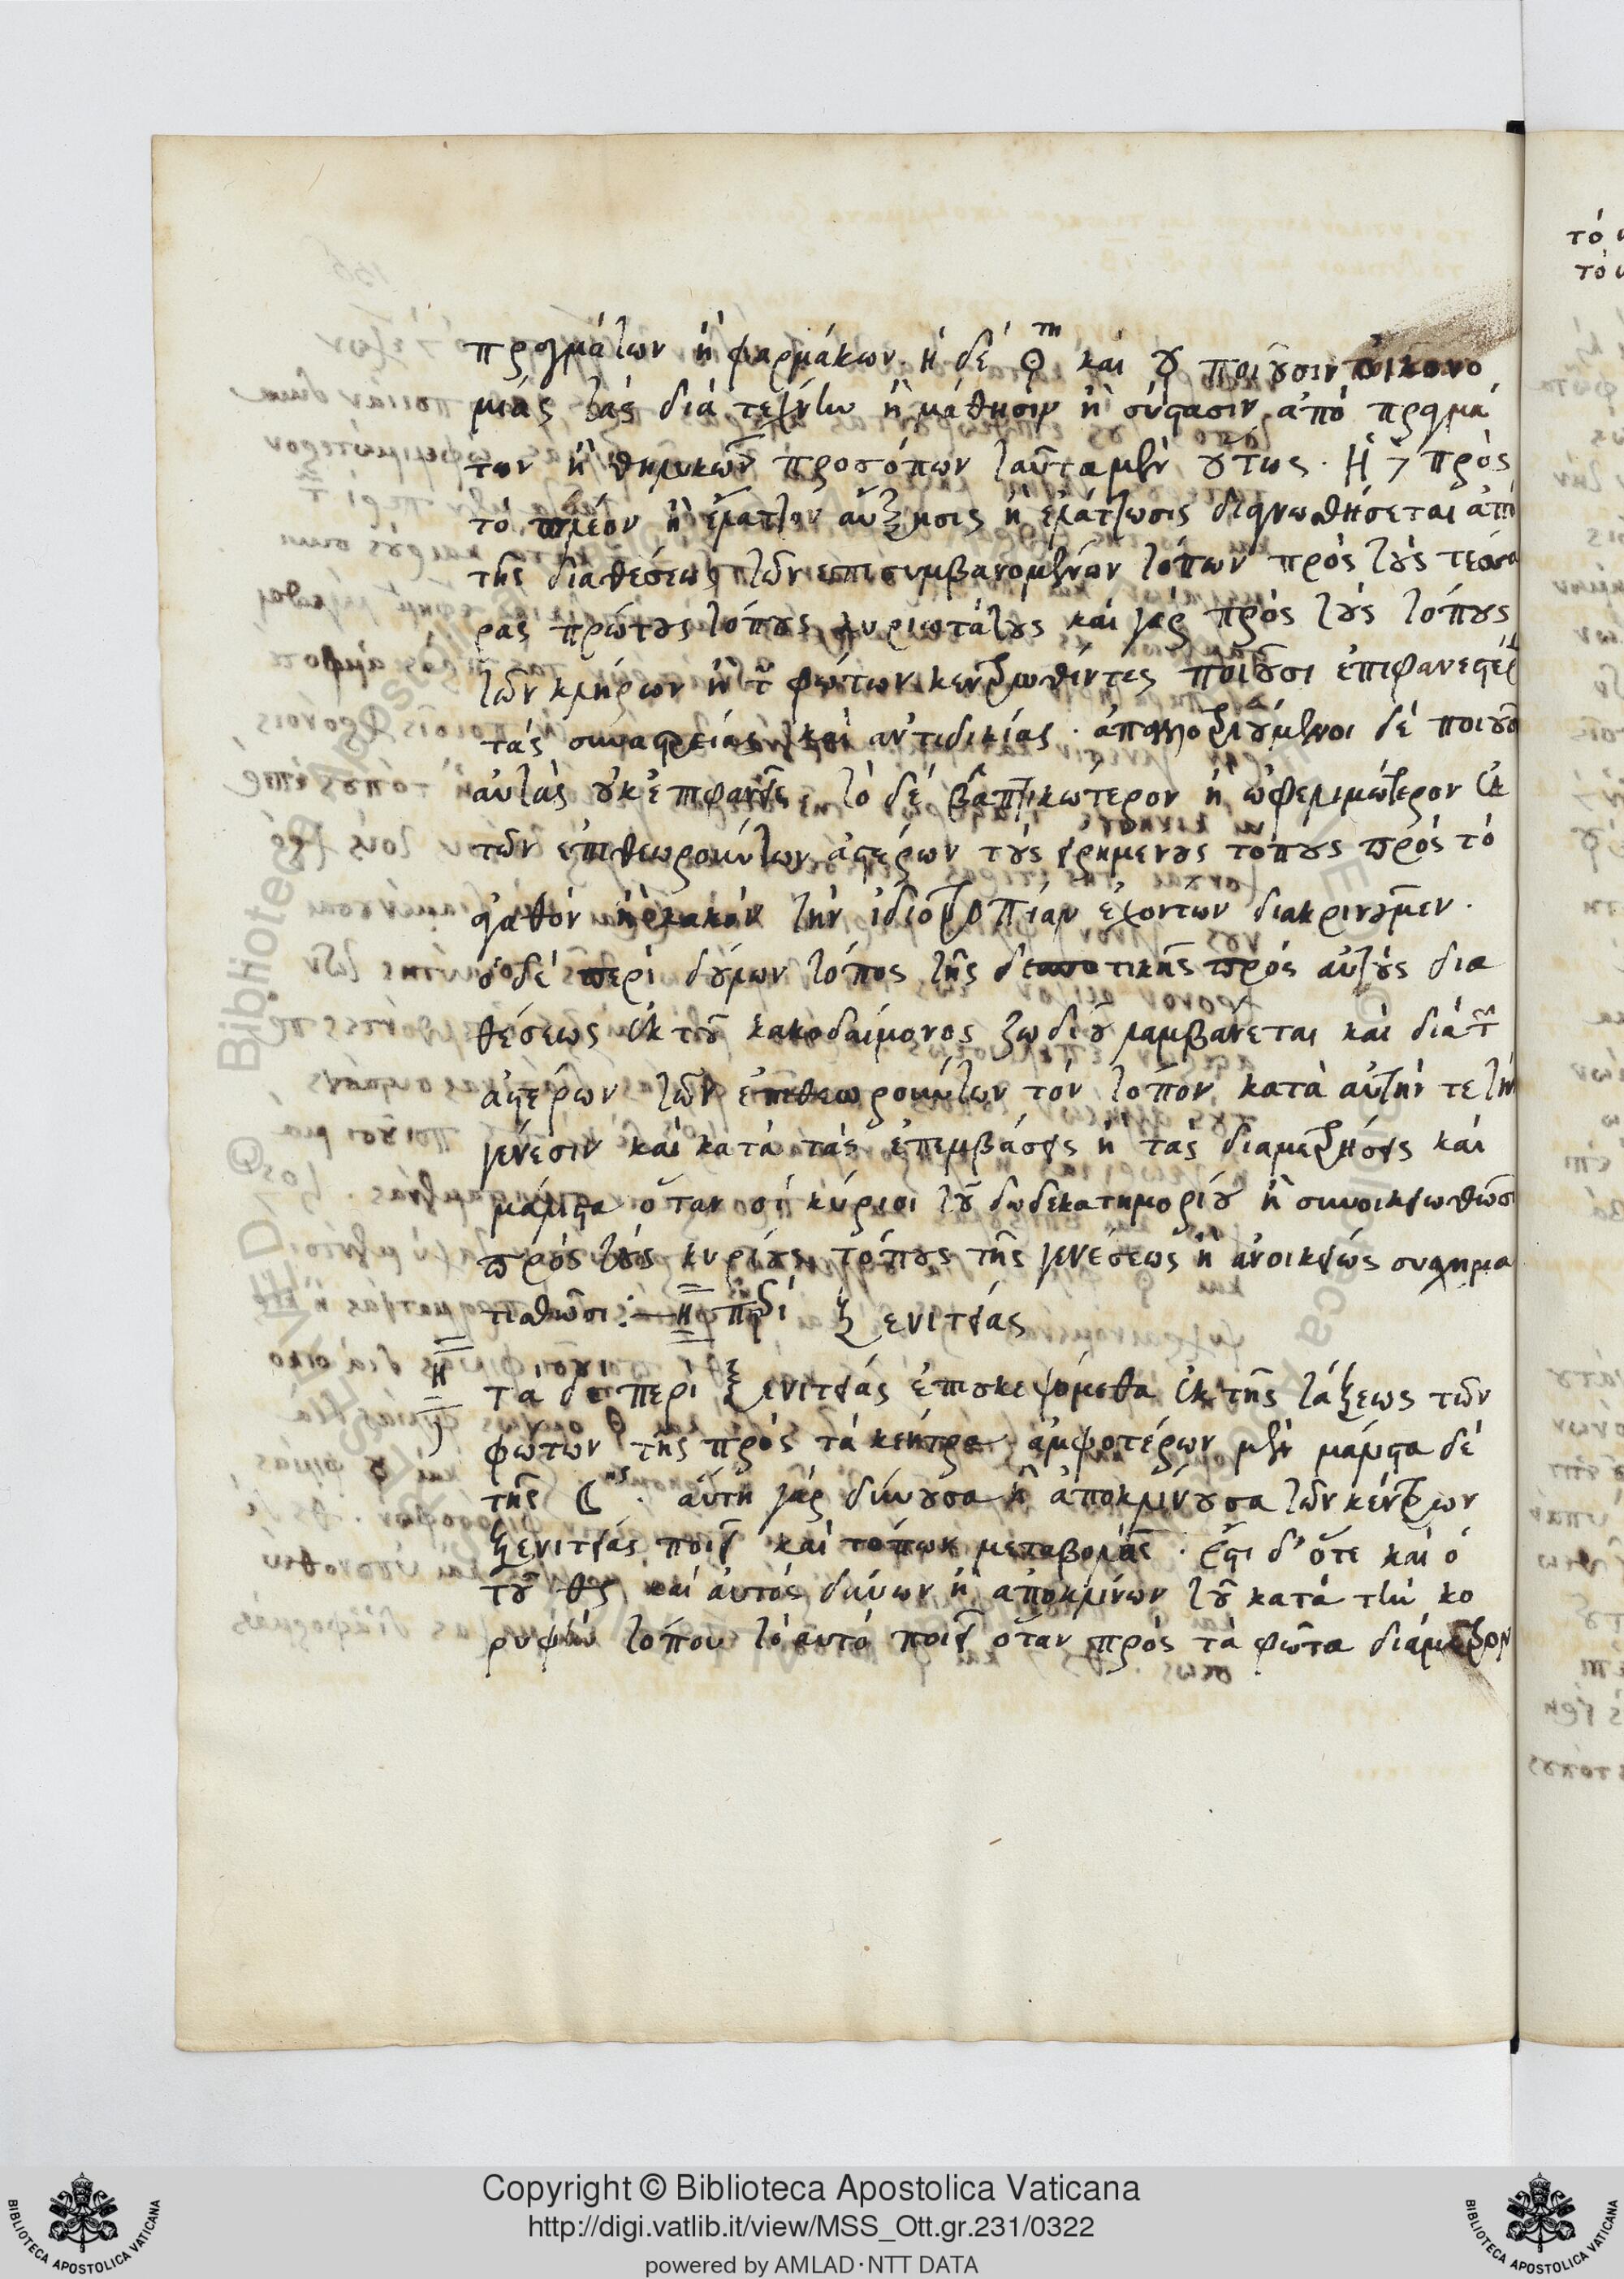 πραγμάτων ἢ φαρμάκων. ἡ δὲ ♀τη καὶ ☿ ποιοῦσιν οἰκονο
μίας τὰς διὰ τέχνην ἢ μάθησιν ἢ σύστασιν ἀπὸ πραγμά
των ἢ θηλυκῶν προσόπων ταῦτα μὲν οὕτως. Ἡ δὲ πρὸς
τὸ πλέον ἢ ἔλαττον αὔξησις ἢ ἐλάττωσις διαγνωσθήσεται ἀπὸ
τῆς διαθέσεως τῶν επισυμβανομένων τόπων πρὸς τοὺς τέσσα
ρας πρώτους τόπους κυριωτάτους καὶ γὰρ πρὸς τοὺς τόπους
τῶν κλήρων ἢ τῶν φώτων κεντρωθέντες ποιοῦσι ἐπιφανεστέρ
τὰς συναστρείας καὶ αντιδικίας. ἀποκεχωρισμένοι δὲ ποιοῦσι
αὐτὰς οὐκ ἐπιφανεῖς. τὸ δὲ βλαπτικώτερον ἢ ὠφελιμώτερον ἐκ
τῶν ἐπιθεωρούντων ἀστέρων τοὺς εἰρημένους τόπους πρὸς τὸ
ἀγαθὸν ἢ κακὸν τὴν ἰδιοτροπίαν ἐχόντων διακρινοῦμεν.
ὁ δὲ περὶ δούλων τόπος τῆς δεσποτικῆς πρὸς αὐτοὺς δια
θέσεως ἐκ τοῦ κακοδαίμονος ζωδίου λαμβάνεται καὶ διὰ τῶν
ἀστέρων τῶν ἐπιθεωρούντων τὸν τόπον κατὰ αὐτήν τε τὴν
γένεσιν καὶ κατὰ τὰς ἐπεμβάσεις ἢ τὰς διαμετρήσεις καὶ
μάλιστα ὅταν οἱ κύριοι τοῦ δωδεκατημορίου ἢ συνοικειωθῶσι
πρὸς τοὺς κυρίους τόπους τῆς γενέσεως ἢ ἀνοικείως συσχημα
τισθῶσι:— Η περὶ ξενιτείας
Η τὰ δὲ περὶ ξενιτείας ἐπισκεψόμεθα ἐκ τῆς τάξεως τῶν
φώτων τῆς πρὸς τὰ κέντρα ἀμφοτέρων μὲν μάλιστα δὲ
τῆς ☾ης. αὕτη γὰρ δύνουσα ἢ ἀποκλίνουσα τῶν κέντρων
ξενιτείας ποιεῖ καὶ τόπων μεταβολάς. ἔστι δ' ὅτε καὶ ὁ
τοῦ ♂ς καὶ αὐτὸς δύνων ἢ ἀποκλίνων τοῦ κατὰ τὴν κο
ρυφὴν τόπου τὸ αυτὸ ποιεῖ ὅταν πρὸς τὰ φῶτα διάμετρον
Copyright © Biblioteca Apostolica Vaticana
http://digi.vatlib.it/view/MSS_Ott.gr.231/0322
powered by AMLAD·NTT DATA
BIBLIOTECA APOSTOLICA VATICANA
BIBLIOTECA APOSTOLICA VATICANA